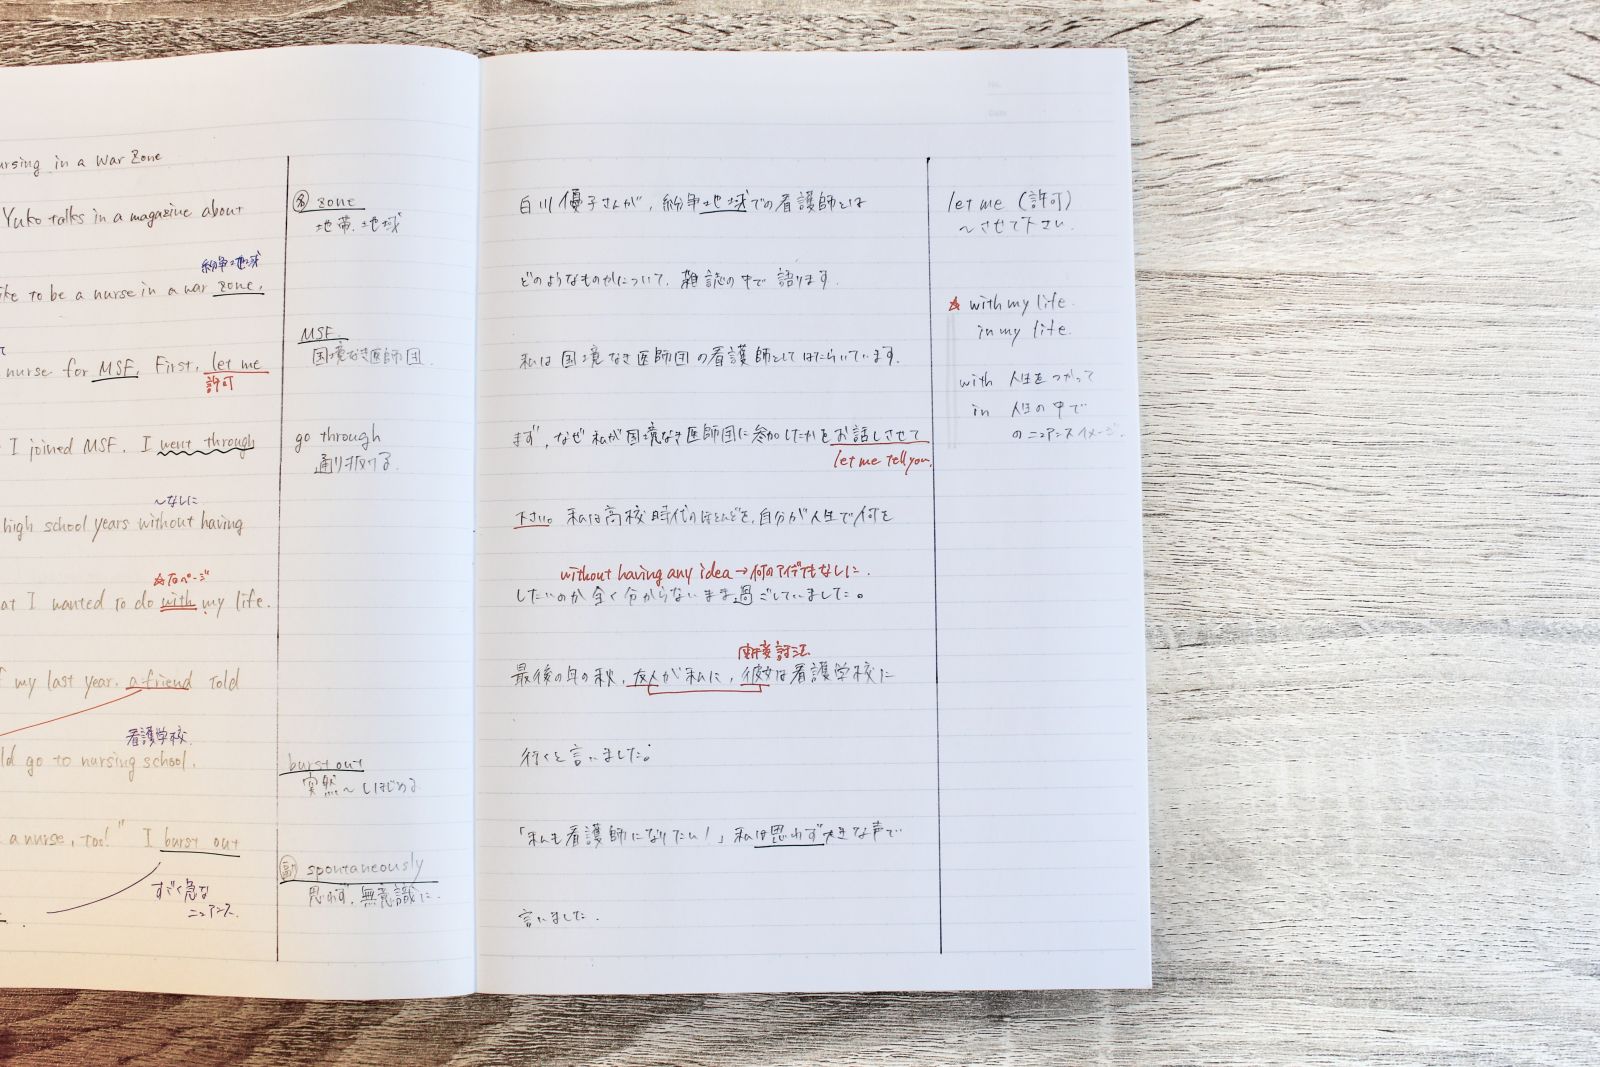 ursing in a War Zone
Yuko talks in a magazine about
紛争地域
ike to be a nurse in a war zone.
nurse for MSF. First, let me
許可
I joined MSF. I went through
～なしに
high school years without having
☆右ページ
at I wanted to do with my life.
f my last year, a friend told
看護学校
ld go to nursing school.
a nurse, too!" I burst out
すごく急な
ニュアンス.
名 zone
地帯、地域
MSF.
国境なき医師団.
go through
通り抜ける.
burst out
突然～しはじめる
副 spontaneously
思わず、無意識に.
白川優子さんが、紛争地域での看護師とは
どのようなものかについて、雑誌の中で語ります.
私は国境なき医師団の看護師としてはたらいています.
まず、なぜ私が国境なき医師団に参加したかをお話しさせて
let me tell you.
下さい。私は高校時代のほとんどを、自分が人生で何を
without having any idea→何のアイデアもなしに.
したいのか全く分からないまま過ごしていました。
間接話法
最後の年の秋、友人が私に、彼女は看護学校に
行くと言いました。
「私も看護師になりたい！」私は思わず大きな声で
言いました.
let me (許可)
～させて下さい.
☆ with my life.
in my life.
with 人生をつかって
in 人生の中で
のニュアンスイメージ.